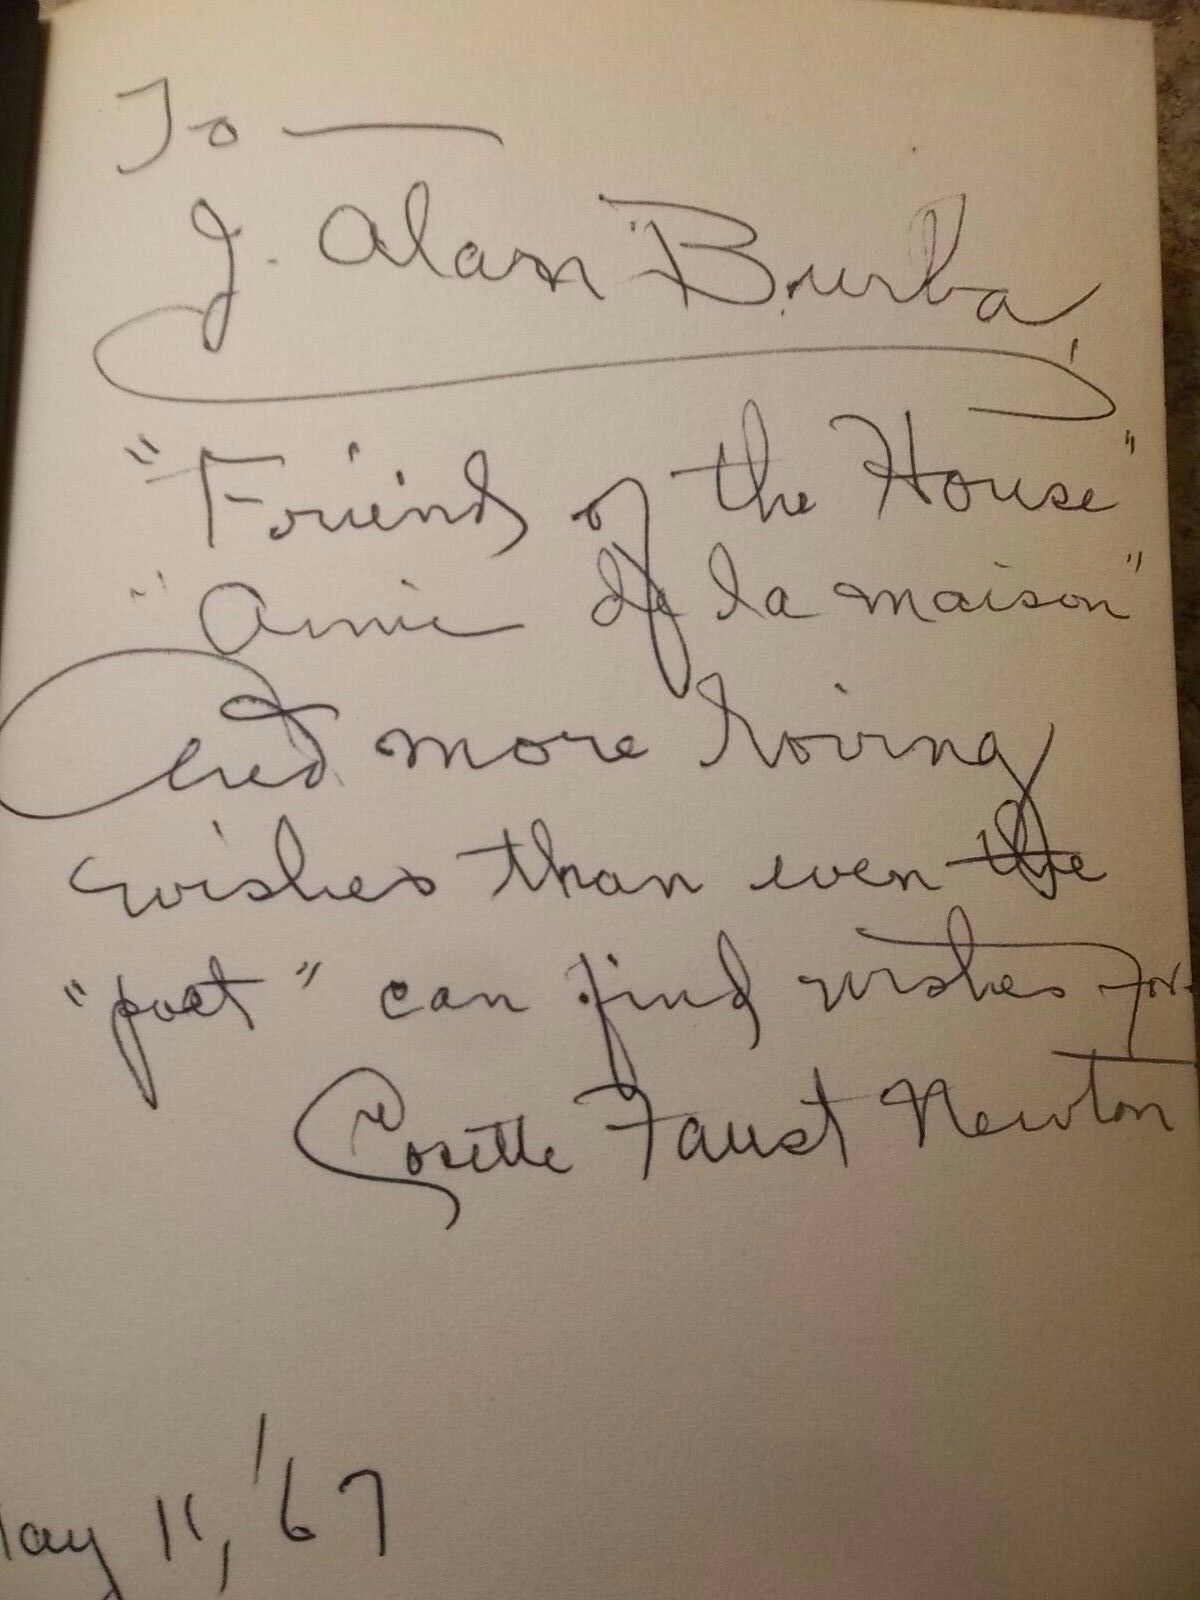 To —
J. Alan Burba,
"Friend of the House"
"Amie de la maison"
And more loving
wishes than even the
"poet" can find wishes for.
Cosette Faust Newton
May 11, '67